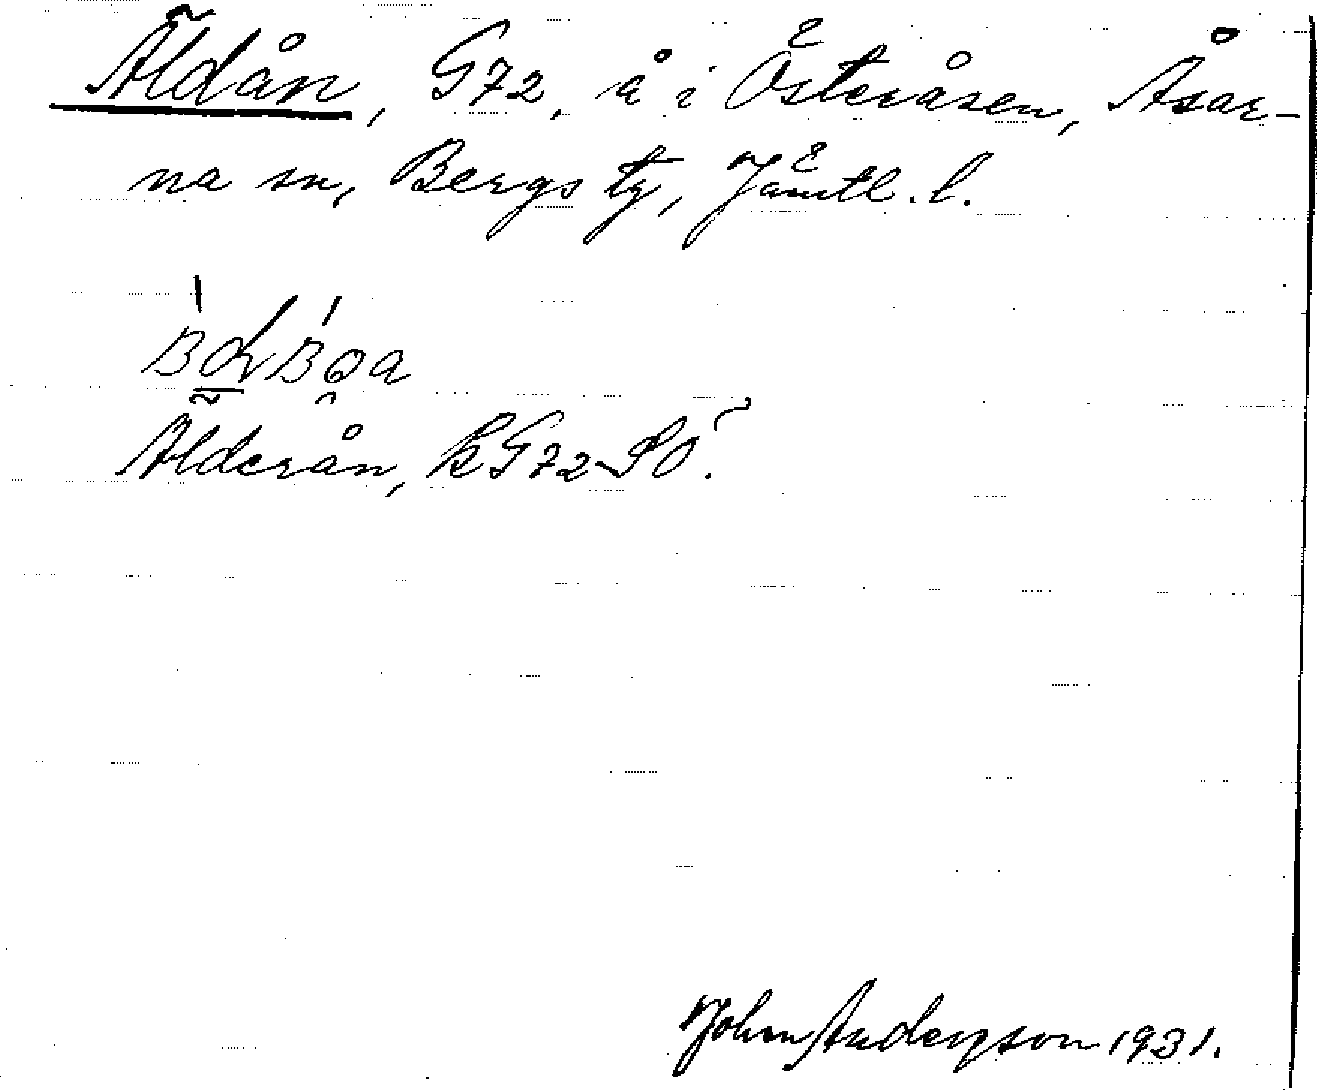 Äldån, G72, å i Österåsen, Åsar-
na sn, Bergs tg, Jämtl. l.
Älderån, kG72SÖ.
John Anderson 1931.